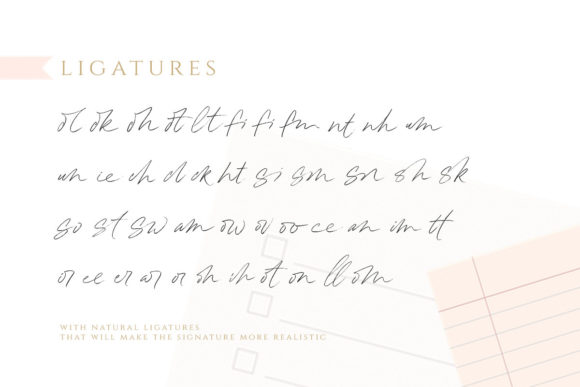 LIGATURES
ol ok oh ot lt fi fi fm nt nh um
un ie ch cl ck ht si sm sn sh sk
so st sw am ow oi oo ce an im tt
or ee er ar or oh ih ot on ll om
WITH NATURAL LIGATURES
THAT WILL MAKE THE SIGNATURE MORE REALISTIC